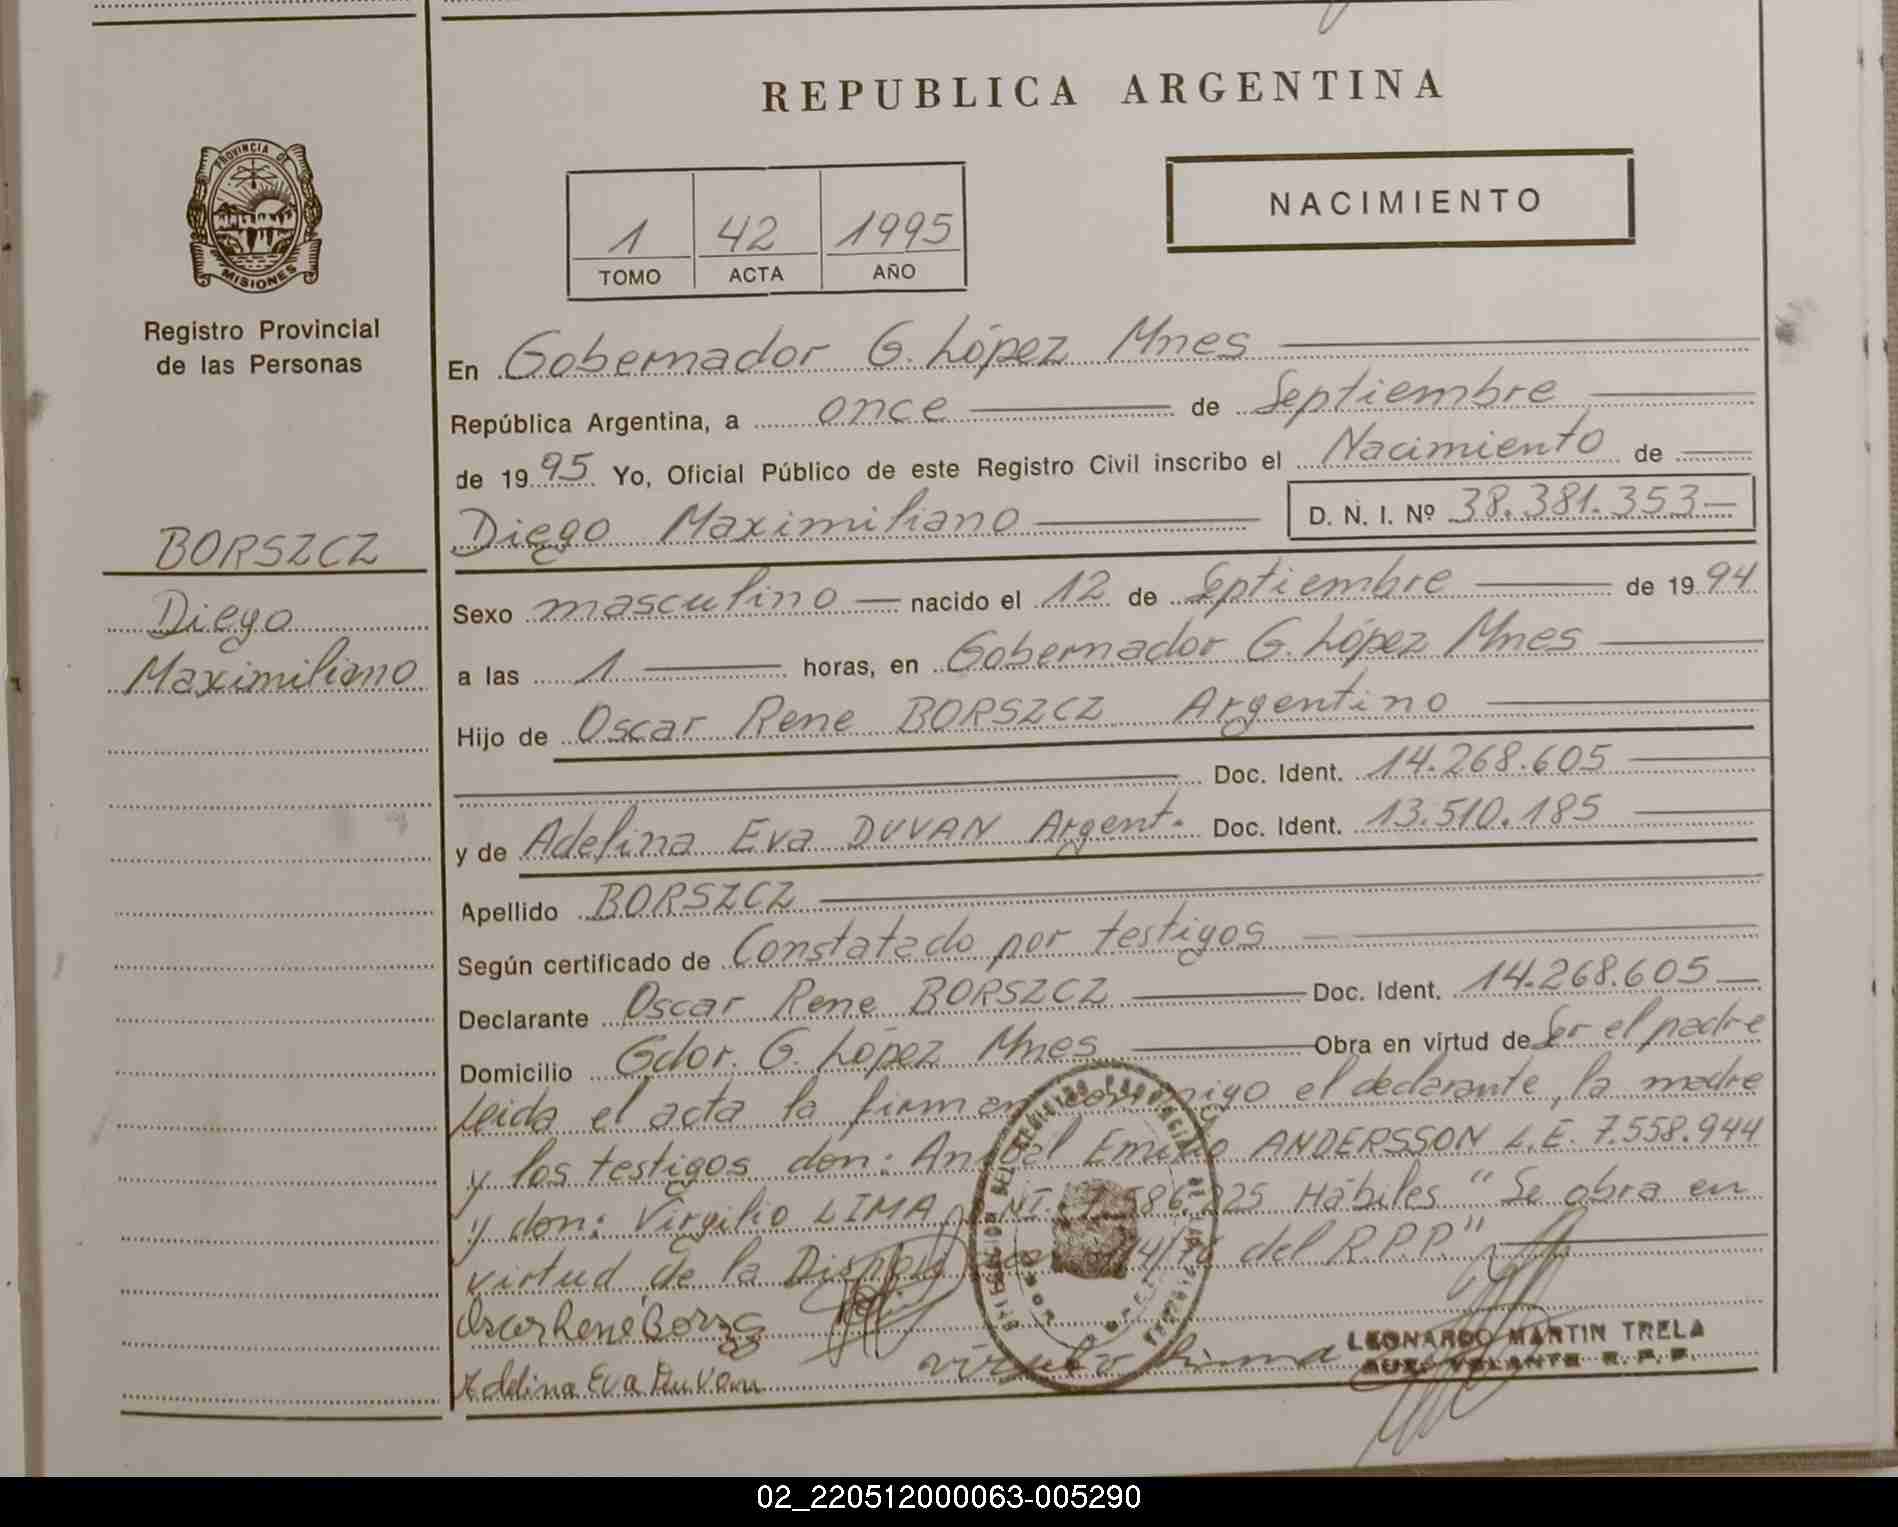 REPUBLICA ARGENTINA
PROVINCIA DE
MISIONES
Registro Provincial
de las Personas
1 42 1995
TOMO ACTA AÑO
NACIMIENTO
BORSZCZ
Diego
Maximiliano
En Gobernador G. López Mnes
República Argentina, a once de Septiembre
de 1995 Yo, Oficial Público de este Registro Civil inscribo el Nacimiento de
Diego Maximiliano D. N. I. Nº 38.381.353
Sexo masculino nacido el 12 de Septiembre de 1994
a las 1 horas, en Gobernador G. López Mnes
Hijo de Oscar Rene BORSZCZ Argentino
Doc. Ident. 14.268.605
y de Adelina Eva DUVAN Argent. Doc. Ident. 13.510.185
Apellido BORSZCZ
Según certificado de Constatado por testigos
Declarante Oscar Rene BORSZCZ Doc. Ident. 14.268.605
Domicilio Gdor. G. López Mnes Obra en virtud de Ser el padre
Leida el acta la firman conmigo el declarante, la madre
y los testigos don: Emilio ANDERSSON L.E. 7.558.944
y don: Virgilio LIMA Hábiles "Se obra en
virtud de la del R.P.P."
Oscar René
Adelina Eva
LEONARDO MARTIN TRELA
AUX. VOLANTE R. P. P.
02_220512000063-005290